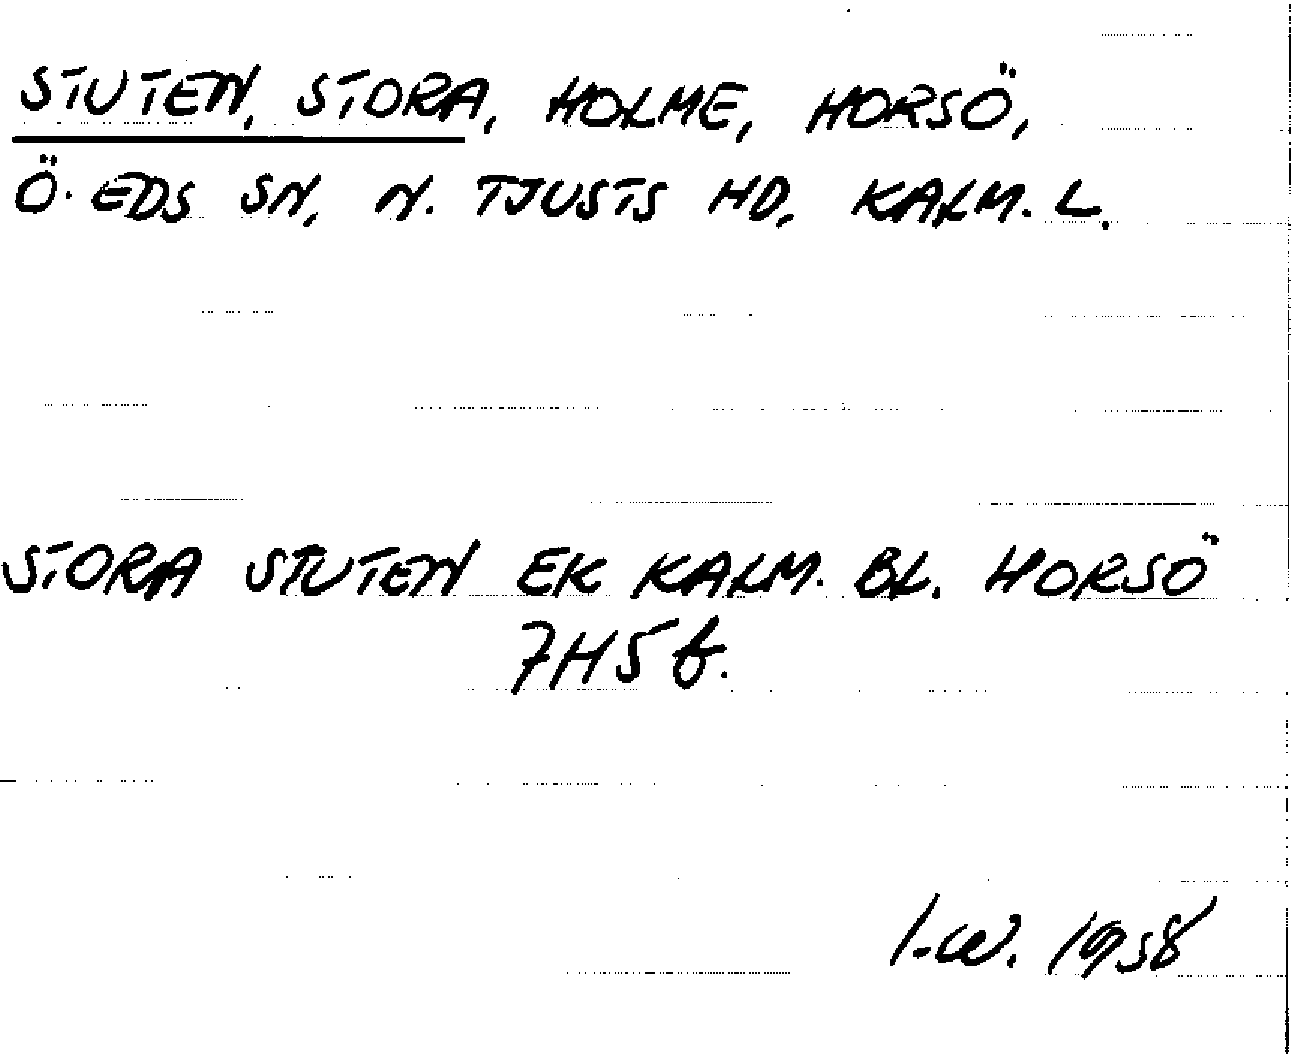 STUTEN, STORA, HOLME, HORSÖ,
Ö. EDS SN, N. TJUSTS HD, KALM. L.
STORA STUTEN EK KALM. BL. HORSÖ
7H5f.
I.W. 1958